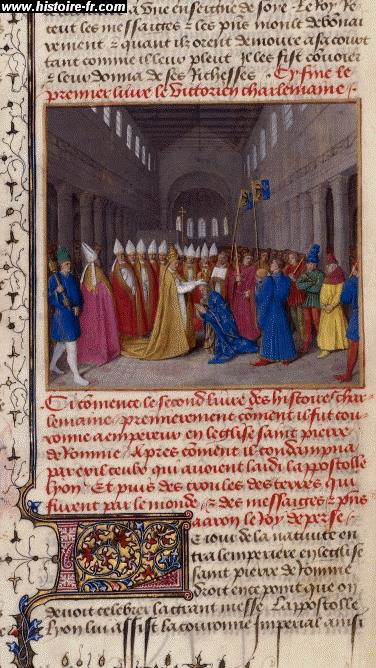 www.histoire-fr.com
une en seulne de soye. Le Roy Re
ceut les messaiges & les pns moult debonai
rement & quant ilz orent demoure a sa court
tant comme il leur pleut. Il lee fist convoier
& leur donna de ses Richesses. Cy fine le
premier livre le victorien charlemaine
Cy cõmence le second livre des histoires char
lemaine, premierement cõment il fut cou
ronne a empereur en leglise saint pierre
de Romme. Apres cõment il condampna
par exil ceulx qui avoient laidi lappostolle
lyon. Et puis des croules des terres qui
furent par le monde, & des messaiges & pns
aaron le Roy de perse
E iour de la nativite en
tra lemperiere en leglise
saint pierre de Romme
droit en ce point que on
devoit celebrer la grant messe. Lappostolle
Lyon lui assist la couronne imperial ainsi